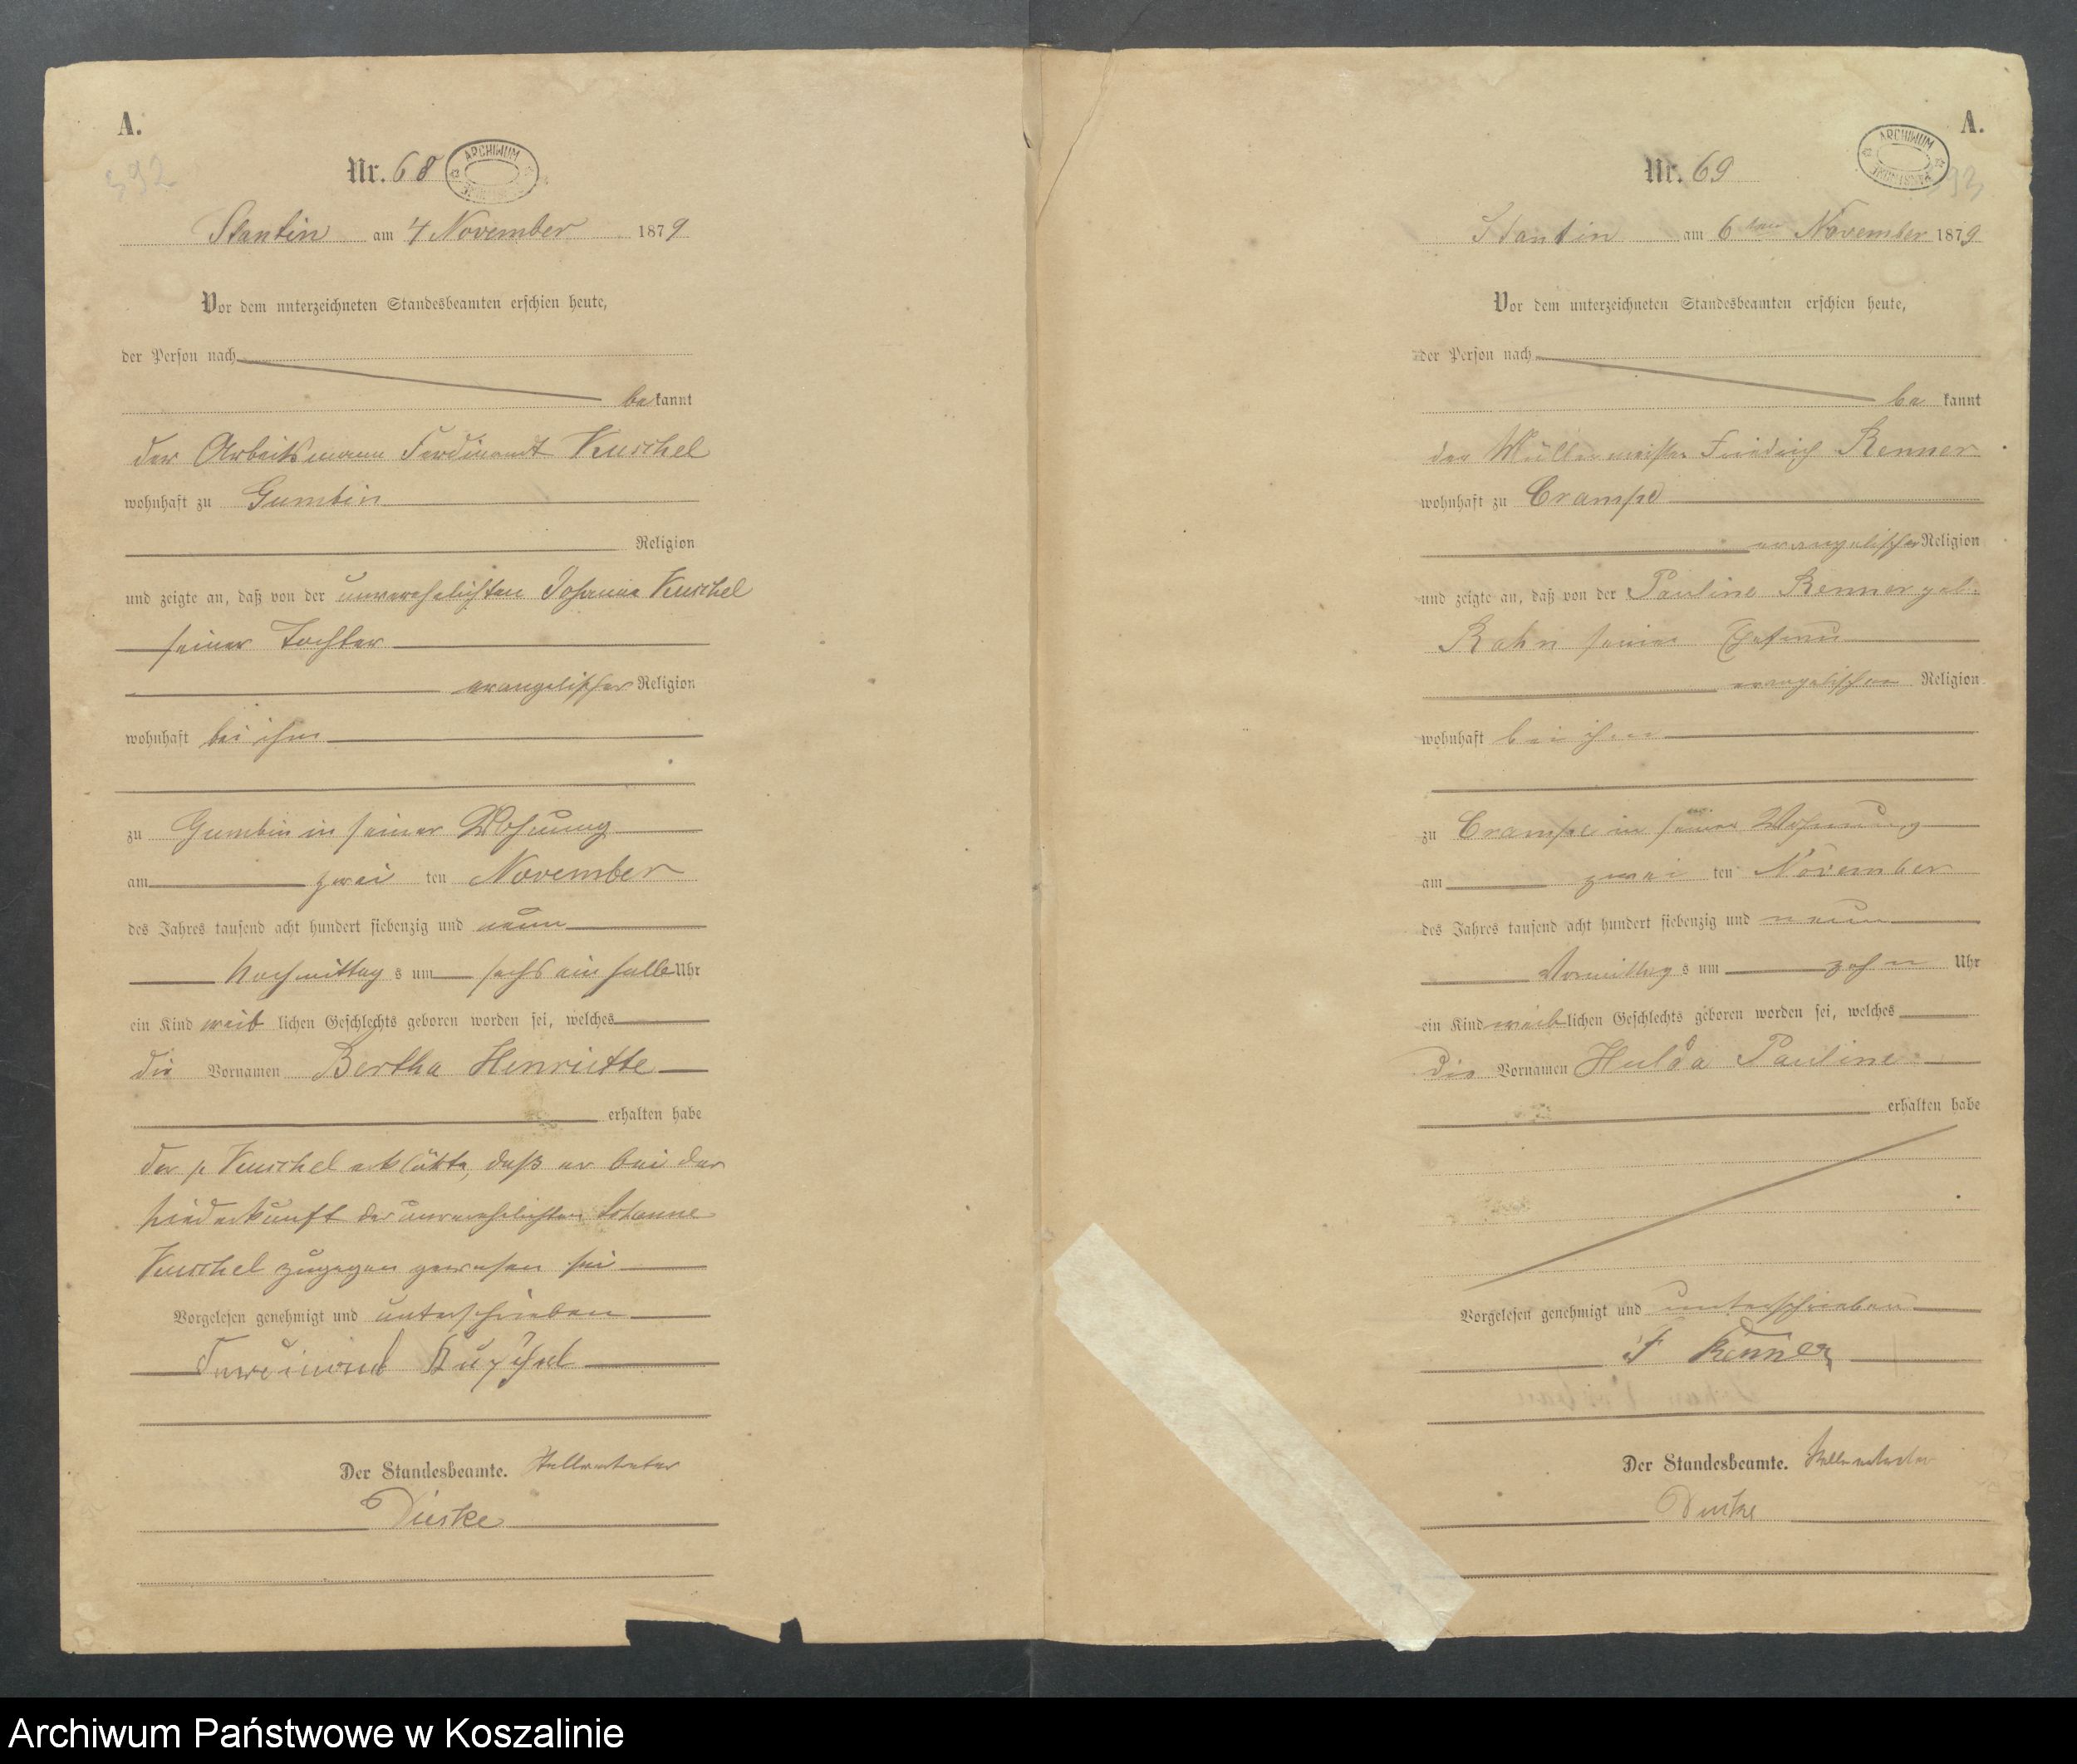 A.
592
Nr. 68
ARCHIWUM
Stantin am 4 November 1879
Vor dem unterzeichneten Standesbeamten erschien heute,
der Person nach
bekannt
der Arbeitsmann Ferdinandt Kuschel
wohnhaft zu Gumbin
Religion
und zeigte an, daß von der unverehelichten Johanne Kuschel
seiner Tochter
evangelischer Religion
wohnhaft bei ihm
zu Gumbin in seiner Wohnung
am zwei ten November
des Jahres tausend acht hundert siebenzig und neun
Nachmittag s um sechs ein halb Uhr
ein Kind weib lichen Geschlechts geboren worden sei, welches
die Vornamen Bertha Henriette
erhalten habe
der p Kuschel erklärte, daß er bei der
Niederkunft der unverehelichten Johanne
Kuschel zugegen gewesen sei
Vorgelesen genehmigt und unterschrieben
Ferdinand Kuschel
Der Standesbeamte. Stellvertreter
Dieske
A.
93
Nr. 69
ARCHIWUM
Stantin am 6ten November 1879
Vor dem unterzeichneten Standesbeamten erschien heute,
der Person nach
be kannt
der Müllermeister Friedrich Renner
wohnhaft zu Crampe
evangelischer Religion
und zeigte an, daß von der Pauline Renner geb.
Rahn seiner Ehefrau
evangelischer Religion
wohnhaft bei ihm
zu Crampe in seiner Wohnung
am zwei ten November
des Jahres tausend acht hundert siebenzig und neun
Vormittag s um zehn Uhr
ein Kind weiblichen Geschlechts geboren worden sei, welches
die Vornamen Hulda Pauline
erhalten habe
Vorgelesen genehmigt und unterschrieben
F Renner
Der Standesbeamte. Stellvertreter
Dieske
Archiwum Państwowe w Koszalinie